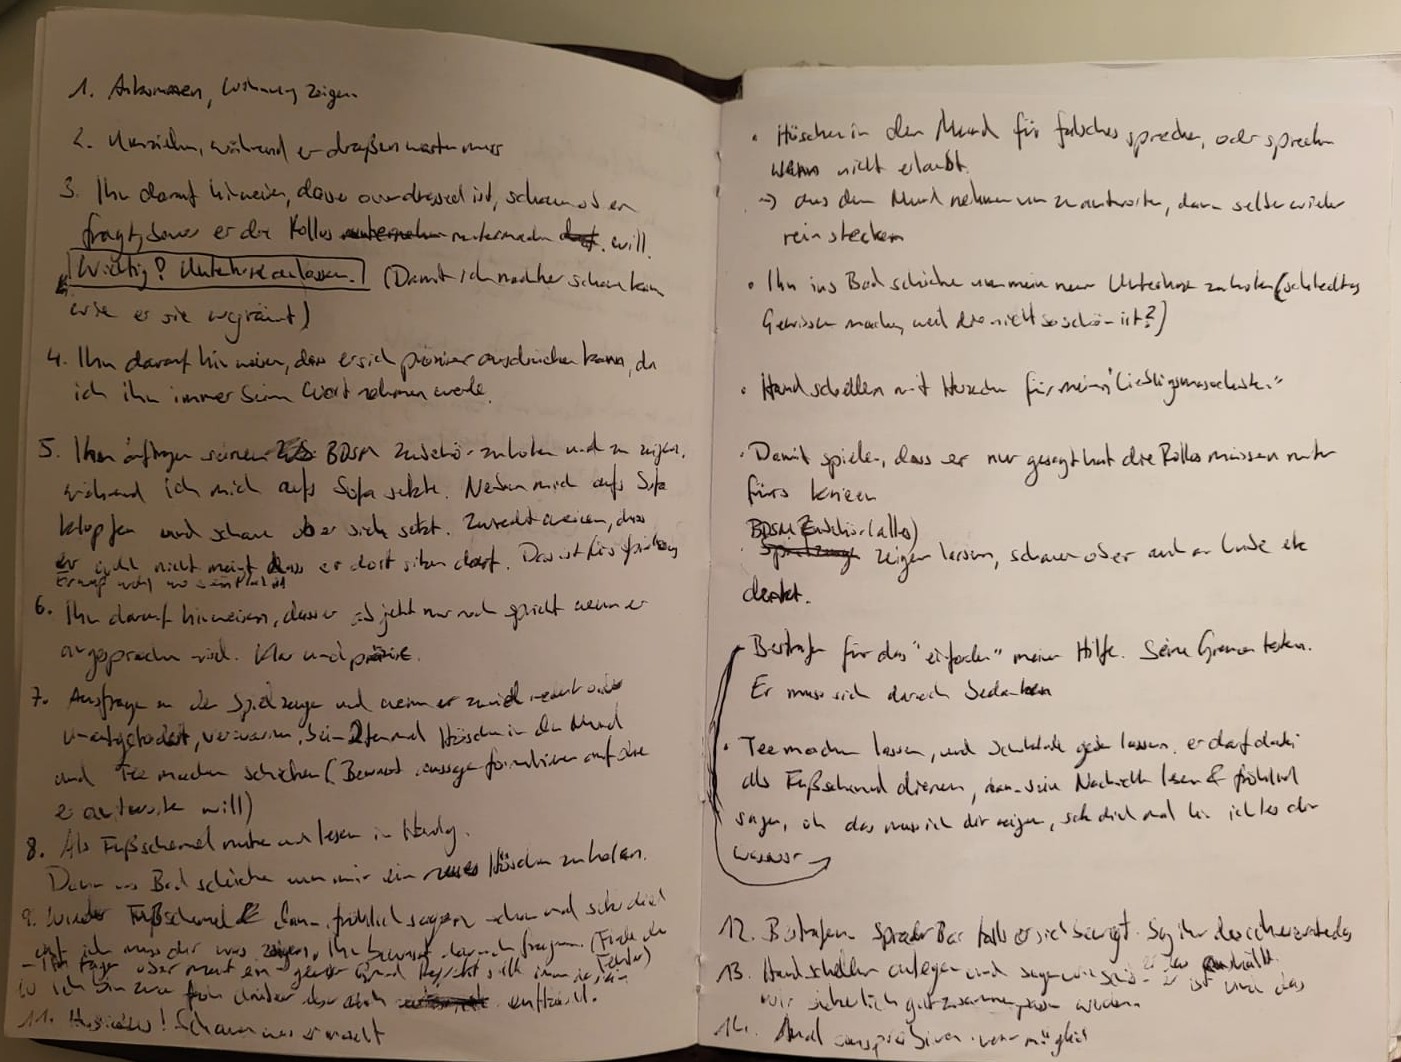 1. Ankommen, Wohnung zeigen
2. Umziehen, während er draußen warten muss
3. Ihn darauf hinweisen, dass overdressed ist, schauen ob er
fragt, bevor er die Rollos runtermachen will.
Wichtig? Unterhose anlassen. (Damit ich nachher schauen kann
wie er sie wegräumt)
4. Ihn darauf hinweisen, dass er sich präziser ausdrücken kann, da
ich ihn immer beim Wort nehmen werde.
5. Ihn auftragen seinen BDSM Zubehör zu holen und zu zeigen,
während ich mich aufs Sofa setzte. Neben mich aufs Sofa
klopfen und schauen ob er sich setzt. Zurechtweisen, dass
er wohl nicht meint dass er dort sitzen darf. Das ist fürs
6. Ihn darauf hinweisen, dass er ab jetzt nur noch spricht wenn er
angesprochen wird. Klar und präzise.
7. Ausfragen zu den Spielzeugen und wenn er zuviel redet oder
unaufgefordert, verwarnen, beim 2ten mal Höschen in den Mund
und Tee machen schicken (Bewusst aussage formulieren auf die
er antworten will)
8. Als Fußschemel nutzen und lesen im Handy.
Dann ins Bad schicken um mir ein neues Höschen zu holen.
9. Wieder Fußschemel & dann fröhlich sagen
ich muss dir was zeigen.
ich bin zwar froh darüber aber auch enttäuscht.
11. Schauen was er macht
· Höschen in den Mund für falsches sprechen, oder sprechen
wenn nicht erlaubt.
→ aus dem Mund nehmen um zu antworten, dann selber wieder
rein stecken
· Ihn ins Bad schicken um mein neue Unterhose zu holen (schlechtes
Gewissen machen, weil die nicht so schön ist?)
· Handschellen mit Herzchen für meinen "Lieblingsmasochisten."
· Damit spielen, dass er nur gesagt hat die Rollos müssen runter
fürs knien
BDSM Zubehör (alles)
· zeigen lassen, schauen ob er auch an Kunde etc
denkt.
· Bestrafen für das "einfordern" meiner Hilfe. Seine Grenzen testen.
Er muss sich danach bedanken
· Tee machen lassen, und Schokolade geben lassen. er darf dabei
als Fußschemel dienen, dann seine Nachricht lesen & fröhlich
sagen, oh das muss ich dir zeigen, setz dich mal hin ich les dir
was vor
12. Bestrafen. Spreader Bar falls er sich bewegt. Sag ihm
13. Handschellen anlegen und sagen wie er ist und das
wir sicherlich gut zusammen passen werden.
14. Anal wenn möglich